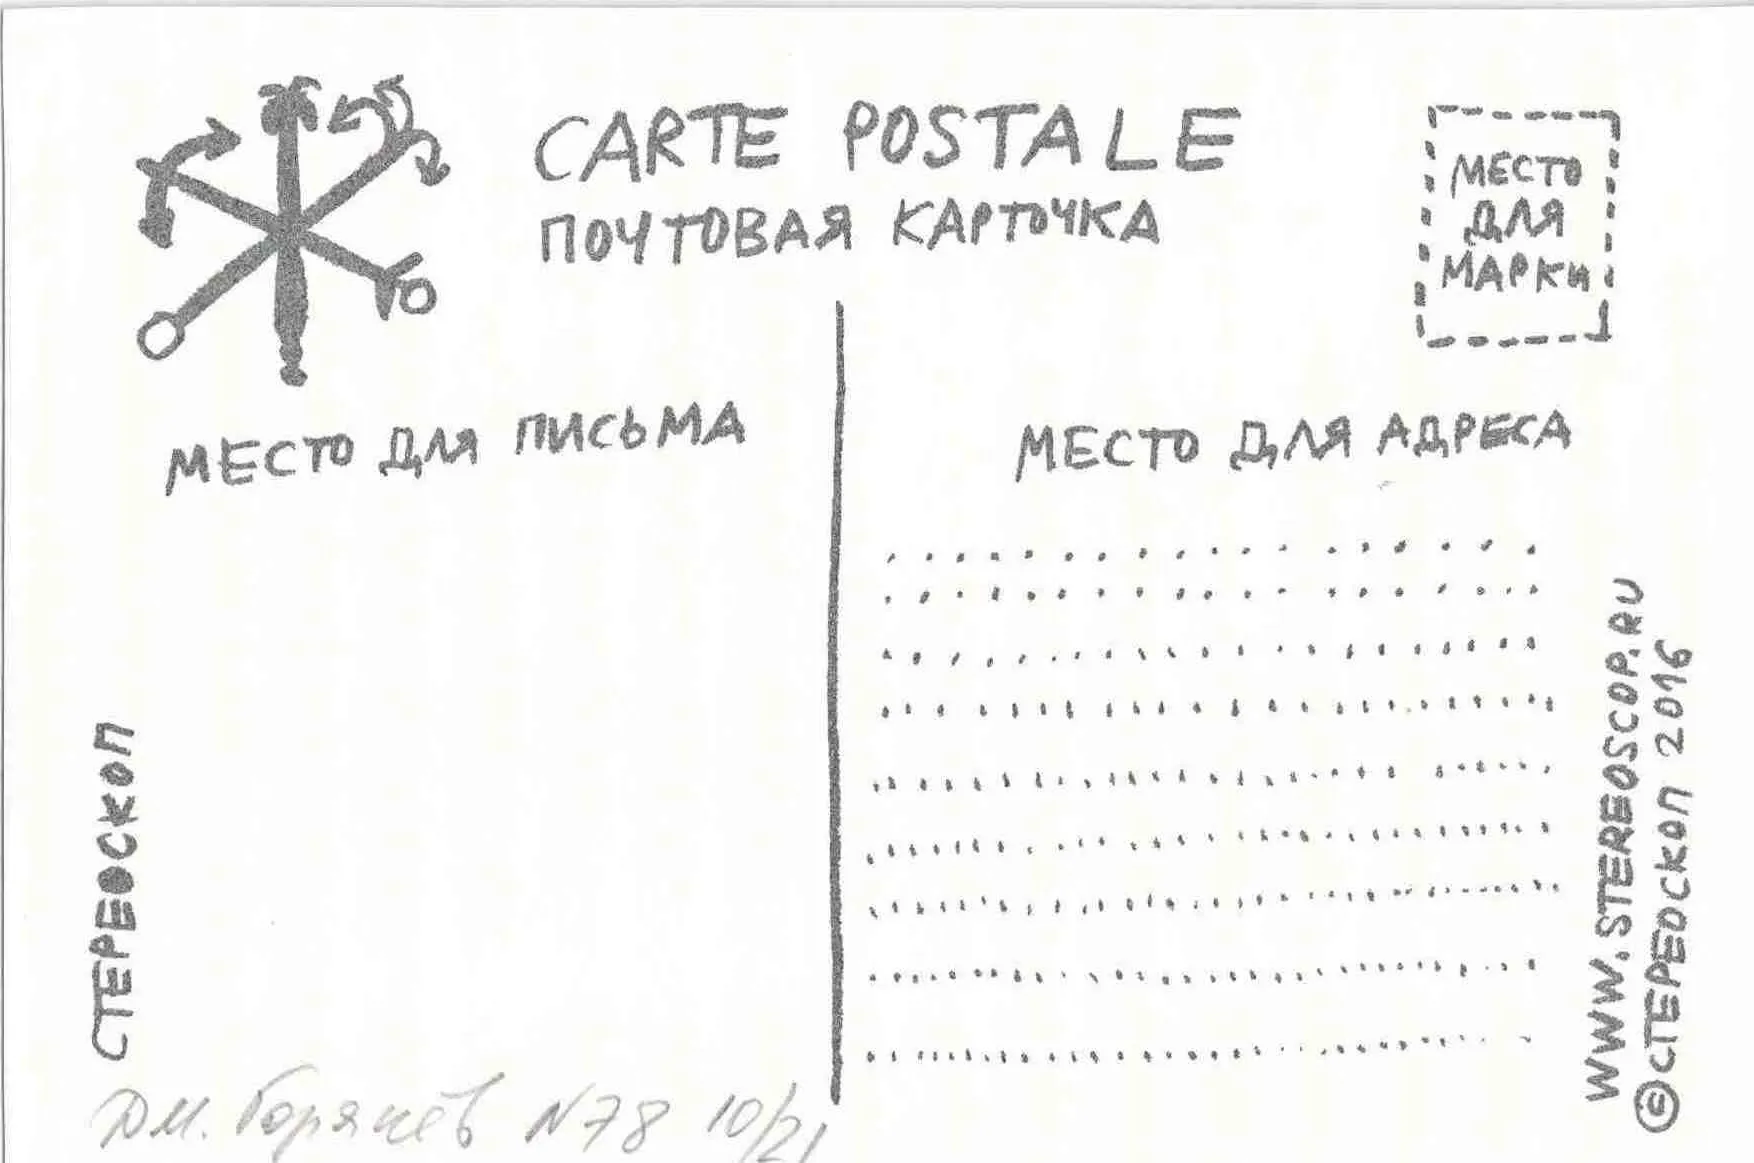 CARTE POSTALE
ПОЧТОВАЯ КАРТОЧКА
МЕСТО
ДЛЯ
МАРКИ
МЕСТО ДЛЯ ПИСЬМА
МЕСТО ДЛЯ АДРЕСА
СТЕРЕОСКОП
WWW.STEREOSCOP.RU
© СТЕРЕОСКОП 2016
Дм. Горячев N78 10/21